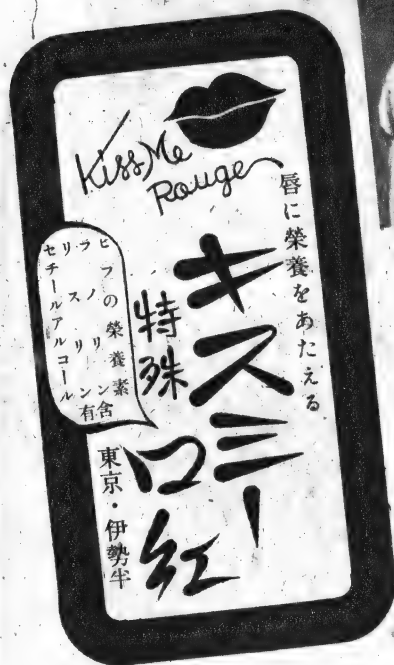 Kiss Me
Rouge
唇に榮養をあたえる
キスミー
特殊口紅
ヒフの榮養素含
ラノリン有
リスリン
セチールアルコール
東京・伊勢半